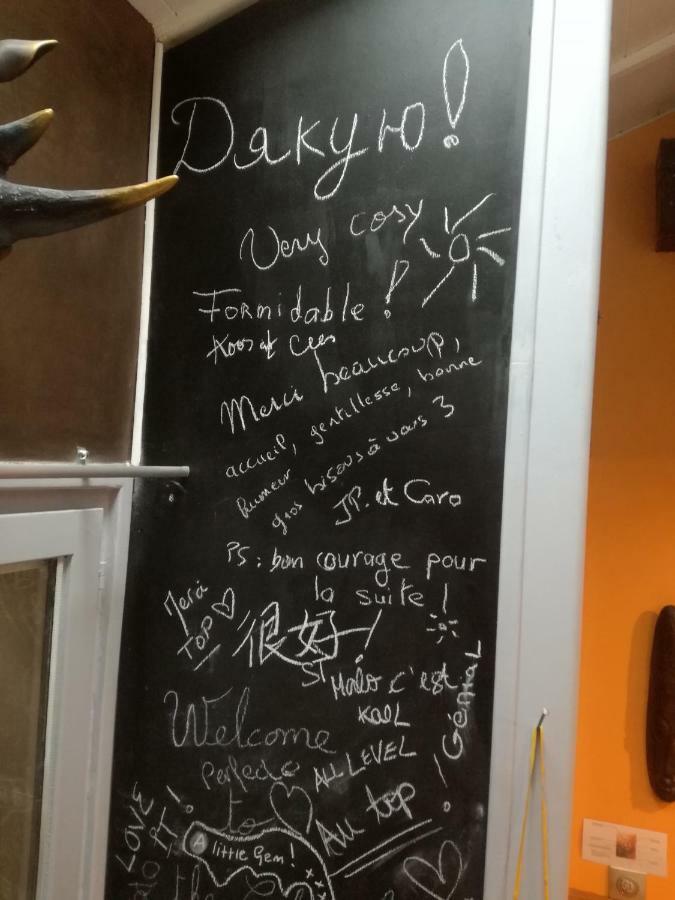 Дякую!
Very cosy
Formidable!
Merci beaucoup,
accueil, gentillesse, bonne
humeur
gros bisous à vous 3
JP. et Caro
PS: bon courage pour
la suite!
Merci
TOP
很好!
ST Malo c'est
KooL
Génial!
Welcome
Perfecto
ALL LEVEL
to
Au top
LOVE
IT!
A little Gem!
the